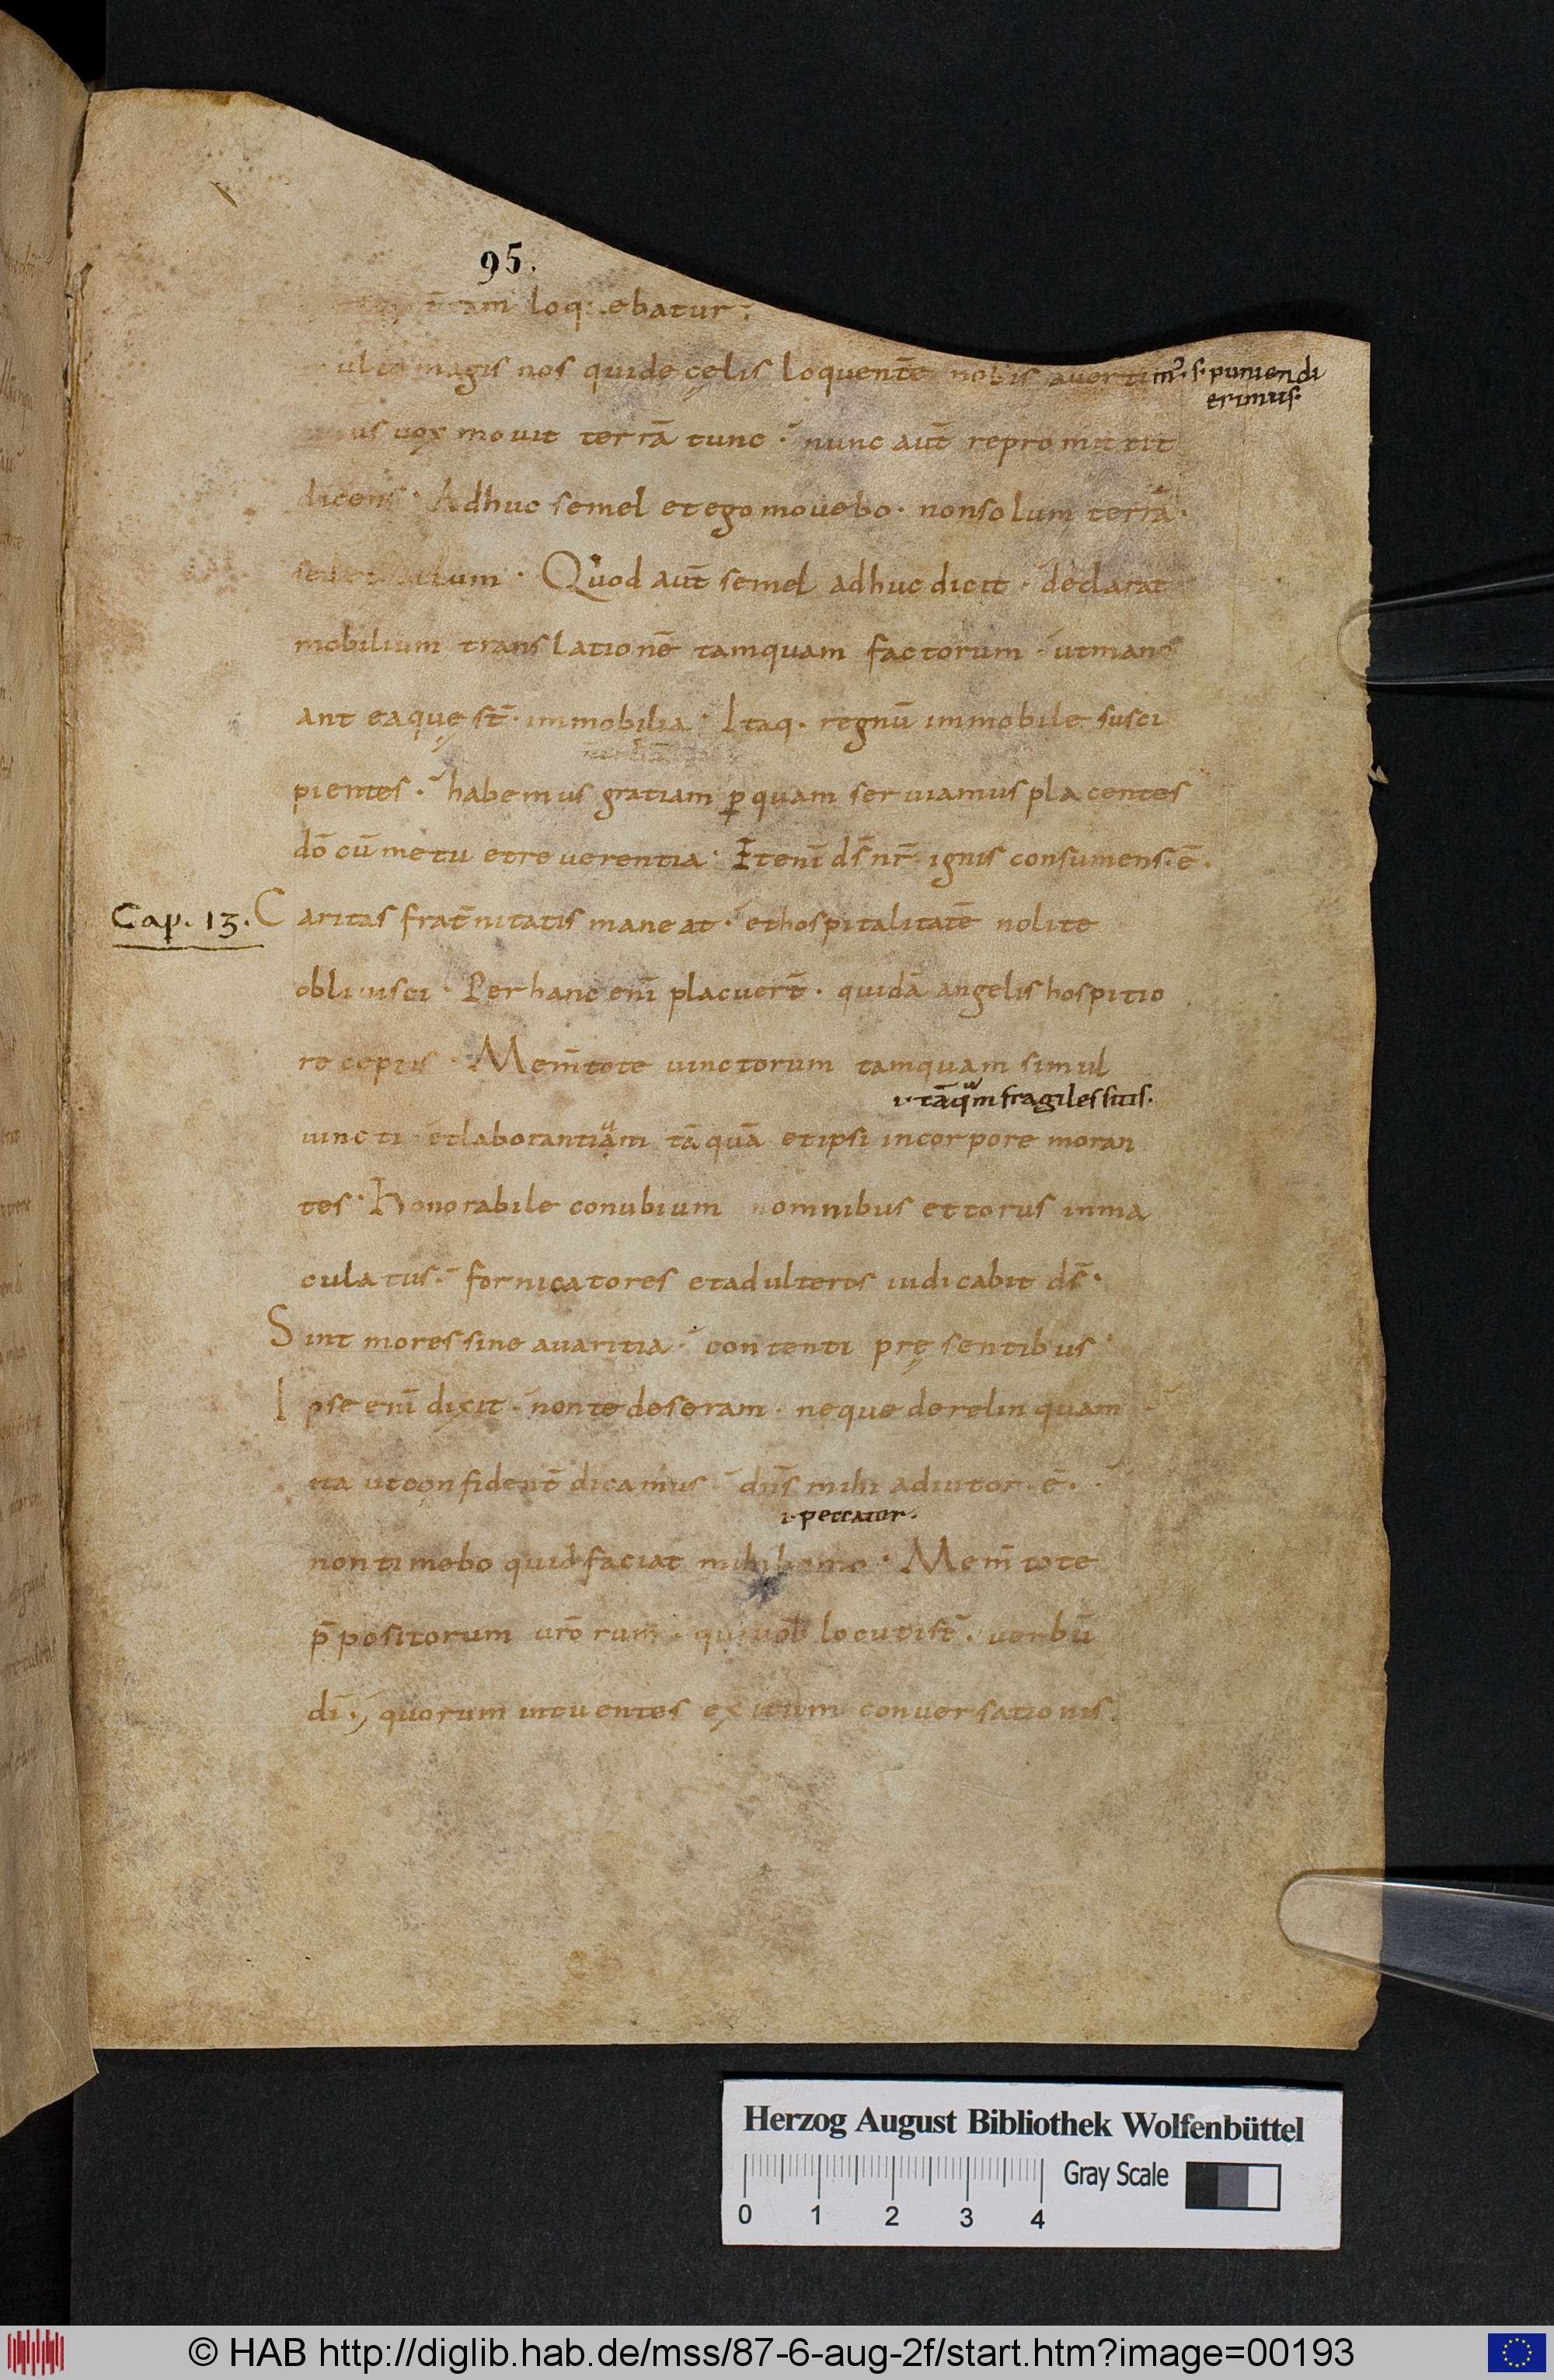 95.
loquebatur
magis nos qui de cęlis loquentē nobis auertim᷒. s. puniendi
erimus.
us uox mouit terrā tunc. nunc aūt repromittit
dicens. Adhuc semel et ego mouebo. non solum terrā.
sed et cęlum. Quod aūt semel adhuc dicit. declarat
mobilium translationē tamquam factorum. ut mane
ant ea quę st̄. immobilia. Itaq. regnū immobile susci
pientes. habemus gratiam ꝑ quam seruiamus placentes
dō cū metu et reuerentia. Etenī ds̄ nr̄ ignis consumens. ē.
Cap. 13. Caritas frat̄nitatis maneat. et hospitalitatē nolite
obliuisci. Per hanc enī placuer̄t. quidā angelis hospitio
receptis. Mem̄tote uinctorum tamquam simul
i. tāquam fragiles sitis.
uincti et laborantium tāquā et ipsi in corpore moran
tes. Honorabile conubium omnibus et torus inma
culatus. fornicatores et adulteros iudicabit ds̄.
Sint mores sine auaritia. contenti pręsentibus.
Ipse enī dixit. non te deseram. neque derelinquam
ita ut confident̄ dicamus. dn̄s mihi adiutor. ē.
i. peccator.
non timebo quid faciat mihi homo. Mem̄tote
p̄positorum urōrum. qui uob̄ locuti st̄. uerbū
dī. quorum intuentes exitum conuersationis.
Herzog August Bibliothek Wolfenbüttel
Gray Scale
0 1 2 3 4
© HAB http://diglib.hab.de/mss/87-6-aug-2f/start.htm?image=00193